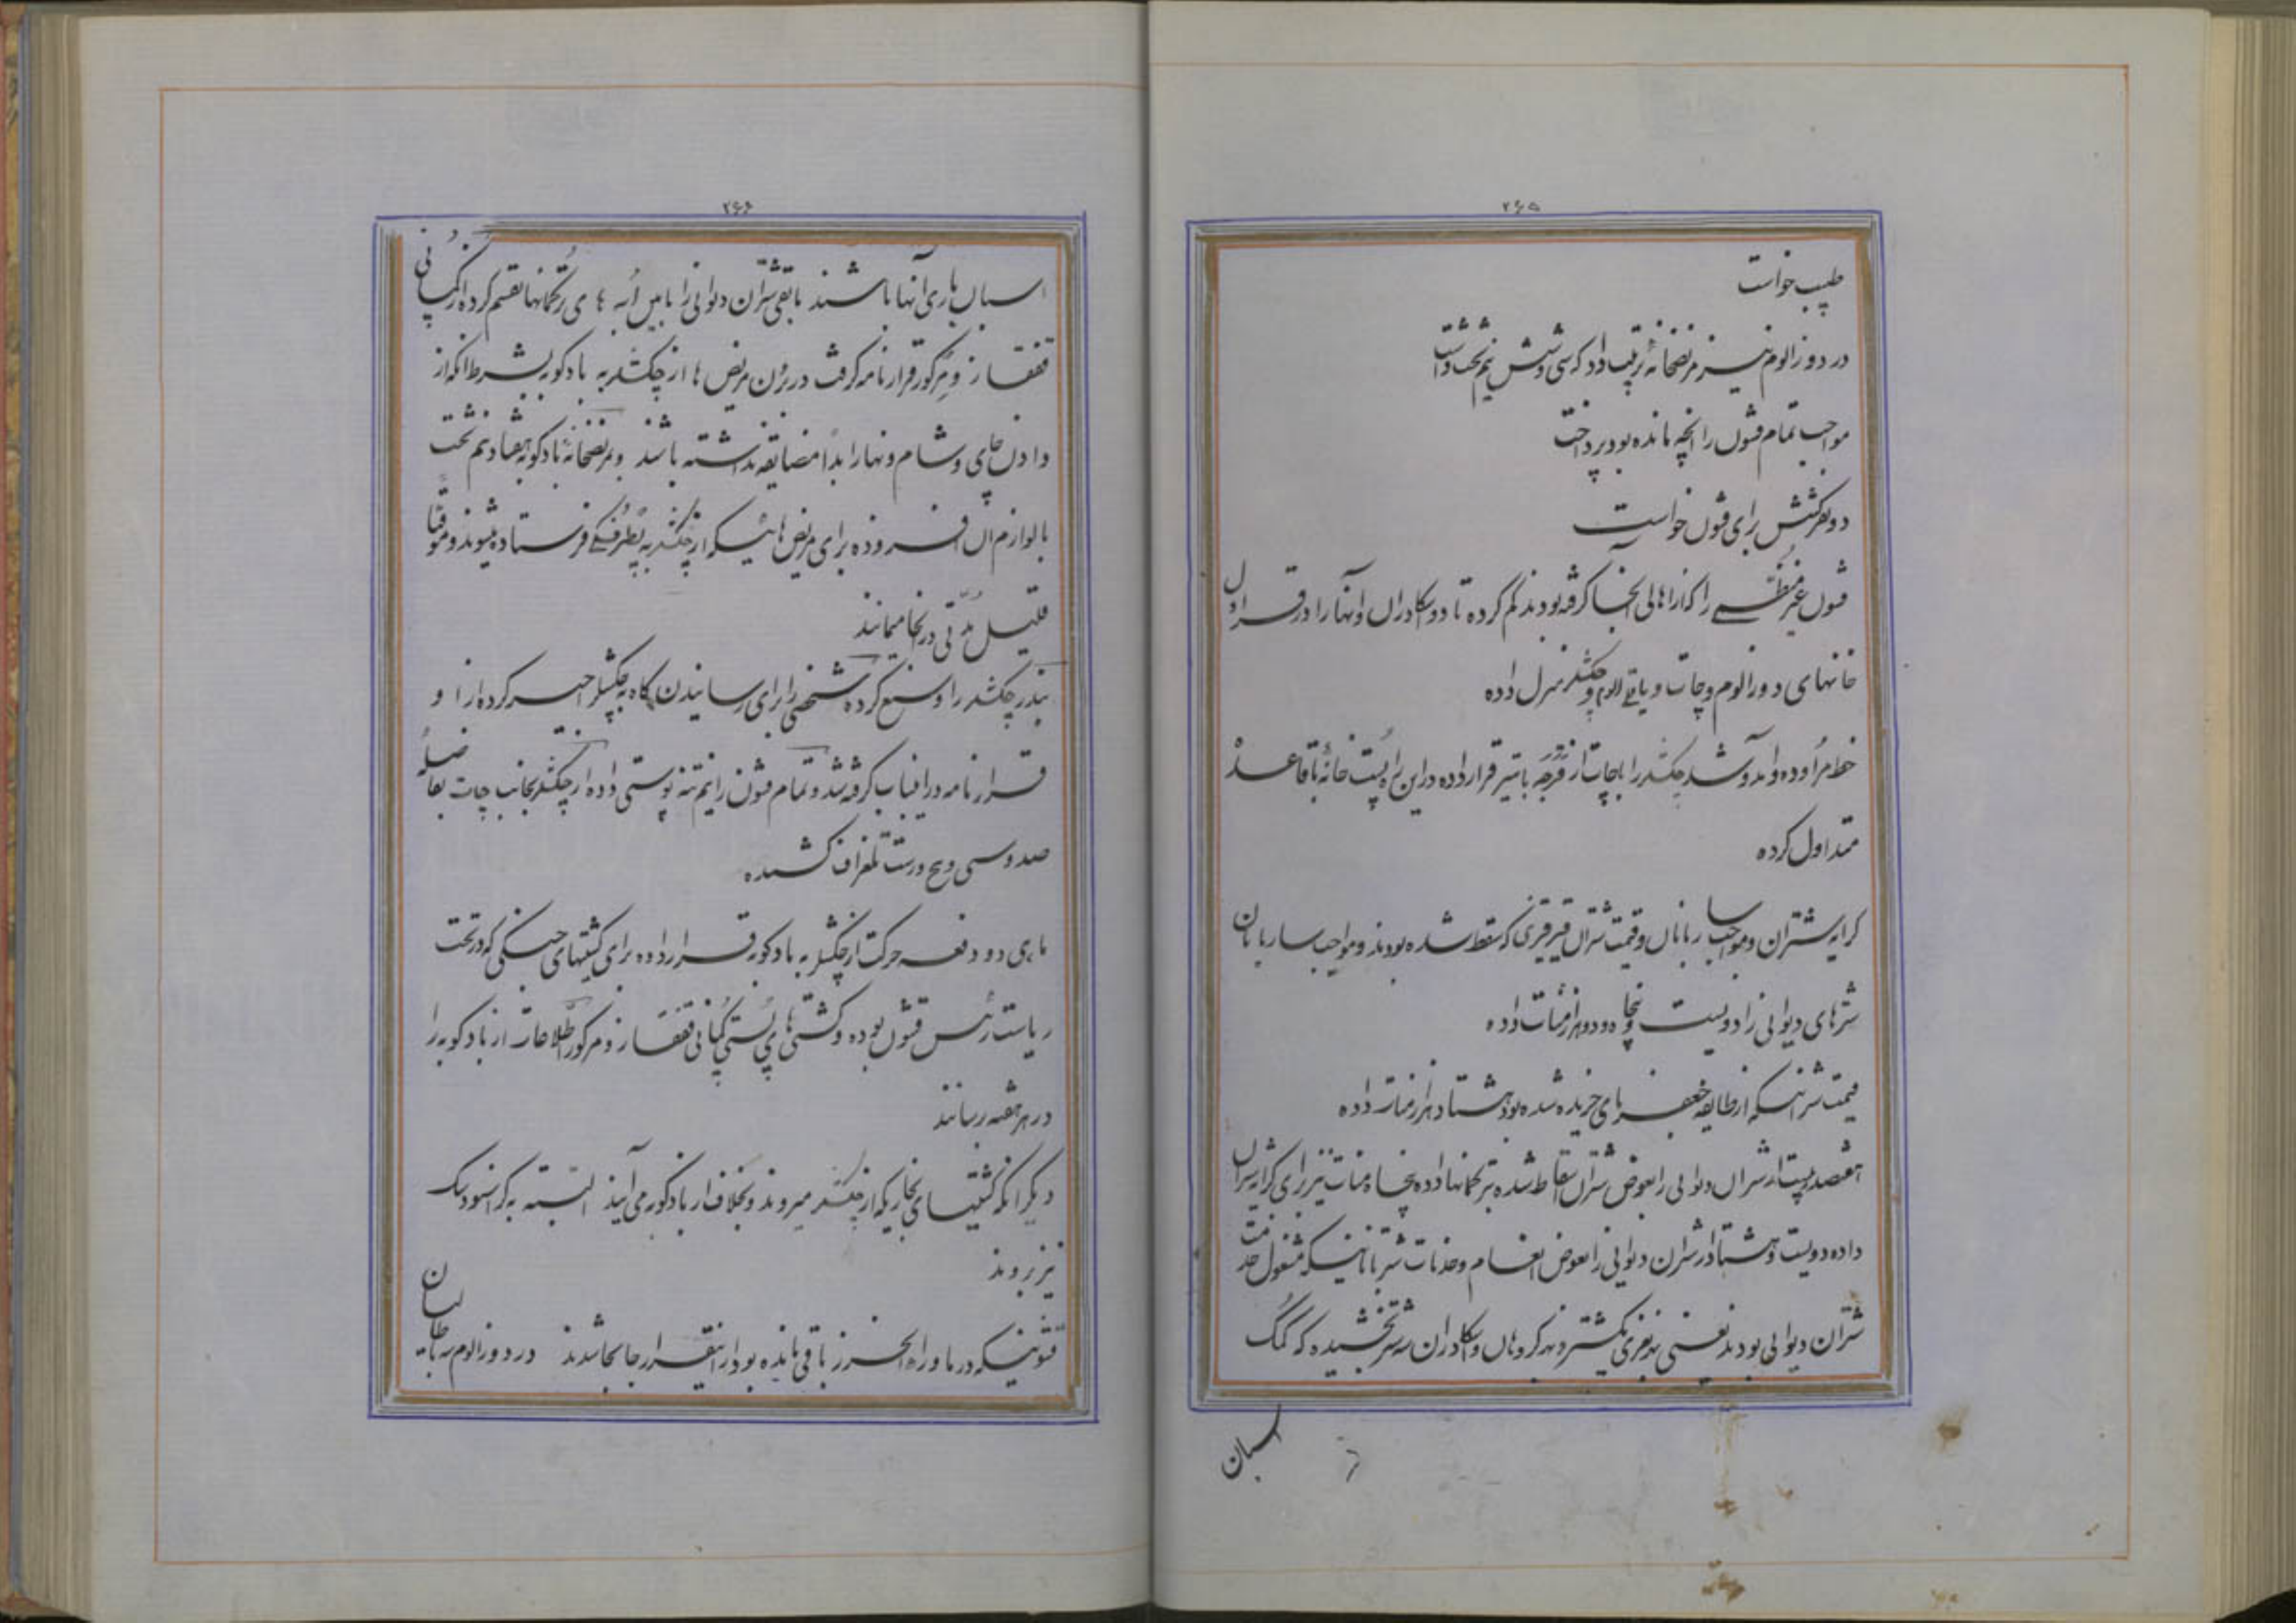 ۲۶۵
طبیب خواست
در دوزالوم نیز مریضخانه ترتیب داد که سی و شش نیم تخت داشت
مواجب تمام قشون را آنچه مانده بود پرداخت
دو نفر کشیش برای قشون خواست
قشون غیر منظمی را که از اهالی آنجا گرفته بودند کم کرده تا دو سکادران و آنها را در قراول
خانهای دوزالوم و چات و یاغی الوم و چکشلر منزل داده
خط مراوده و آمد و شد چکشلر را با چات از قرار داده در این راه پست خانه با قاعده
متداول کرده
کرایه شتران و مواجب ساربانان و قیمت شتران قیرقیزی که سقط شده بودند و مواجب ساربانان
شترهای دیوانی را دویست و پنجاه و دو هزار منات داده
قیمت شترانیکه از طایفه جعفربای خریده شده بود هشتاد هزار منات داده
هفتصد و بیست از شتران دیوانی را بعوض شتران سقط شده بترکمانها داده پنجاه منات نیز برای کرایه شتران
داده دویست و هشتاد از شتران دیوانی را بعوض انعام و خدمات شتربانانیکه مشغول خدمت
شتران دیوانی بودند یعنی بده نفری یکشتر و بهر کروهان و سکادران سه شتر بخشیده که کمک
اسبان
۲۶۶
اسبان باری آنها باشند باقی شتران دیوانی را مابین ابه های ترکمانها تقسیم کرده از کمپانی
قفقاز و مرکور قرارنامه گرفت در بردن مریض ها از چکشلر به بادکوبه بشرط آنکه از
دادن چای و شام و نهار ابداً مضایقه نداشته باشد و بمریضخانه بادکوبه هفتاد نیم تخت
با لوازم آن افزوده برای مریض هائیکه از چکشلر به پطرفسکی فرستاده میشوند و موقتاً
قلیل مدتی در آنجا میمانند
بندر چکشلر را وسیع کرده شخصی را برای رسانیدن کاه به چکشلر اجیر کرده از او
قرارنامه در اینباب گرفته شد و تمام قشون را نیم تنه پوستی داده از چکشلر بجانب چات بفاصله
صد و سی و پنج ورست تلغراف کشیده
ماهی دو دفعه حرکت از چکشلر به بادکوبه قرار داده برای کشتیهای جنگی که در تحت
ریاست رئیس قشون بوده و کشتی های پستی کمپانی قفقاز و مرکور اطلاعات از بادکوبه را
در هر هفته رسانند
دیگر آنکه کشتیهای بخاریکه از چکشلر میروند و بخلاف از بادکوبه می آیند البته به کراسنودسک
نیز بروند
قشونیکه در ماوراء الخزر باقی مانده بود از اینقرار جابجا شدند در دوزالوم سه باطالیان